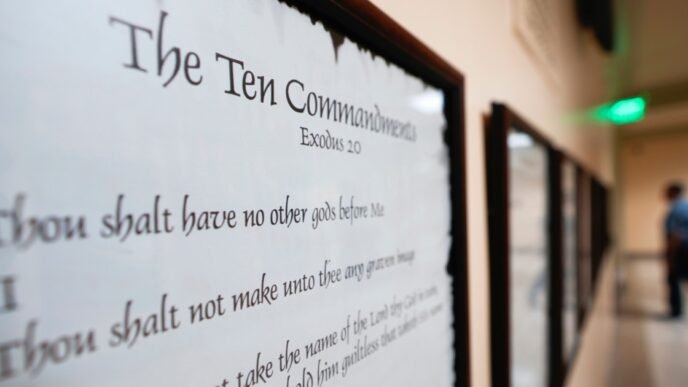 The Ten Commandments
Exodus 20
Thou shalt have no other gods before Me
II
Thou shalt not make unto thee any graven image
not take the name of the Lord thy God in vain,
hold him guiltless that taketh His name